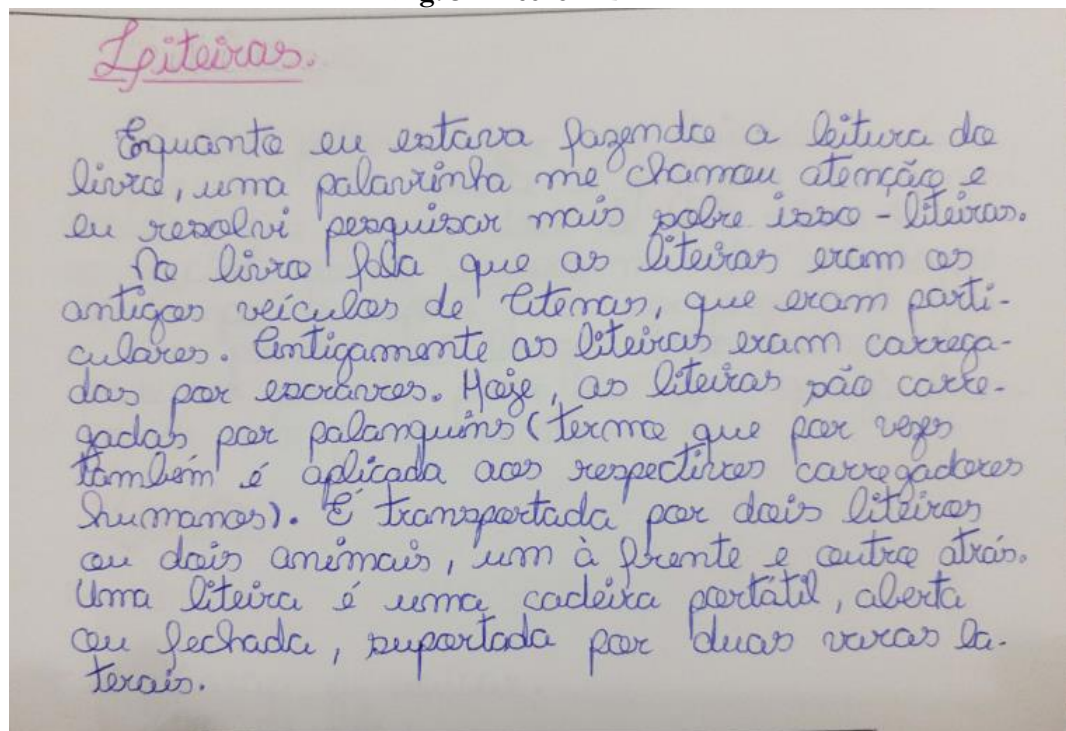 Leiteiras.
Enquanto eu estava fazendo a leitura do
livro, uma palavrinha me chamou atenção e
eu resolvi pesquisar mais sobre isso - liteiras.
No livro fala que as liteiras eram os
antigos veículos de Atenas, que eram parti-
culares. Antigamente as liteiras eram carrega-
das por escravos. Hoje, as liteiras são carre-
gadas por palanquins (termo que por vezes
também é aplicada aos respectivos carregadores
humanos). É transportada por dois liteiros
ou dois animais, um à frente e outro atrás.
Uma liteira é uma cadeira portátil, aberta
ou fechada, suportada por duas varas la-
terais.